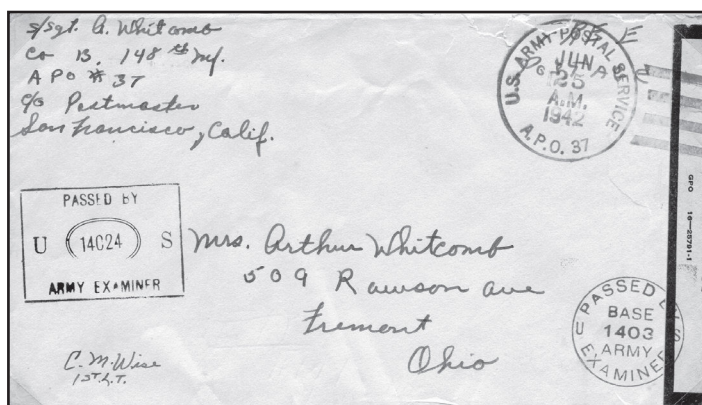 S/Sgt. A. Whitcomb
Co B. 148th Inf.
APO # 37
c/o Postmaster
San Francisco, Calif.
Free
U.S. ARMY POSTAL SERVICE
JUN
25
A.M.
1942
A.P.O. 37
PASSED BY
U 14024 S
ARMY EXAMINER
Mrs. Arthur Whitcomb
509 Rawson ave
Fremont
Ohio
C. M. Wise
1ST. LT.
PASSED BY
U BASE S
1403
ARMY
EXAMINER
GPO 16—28791-1